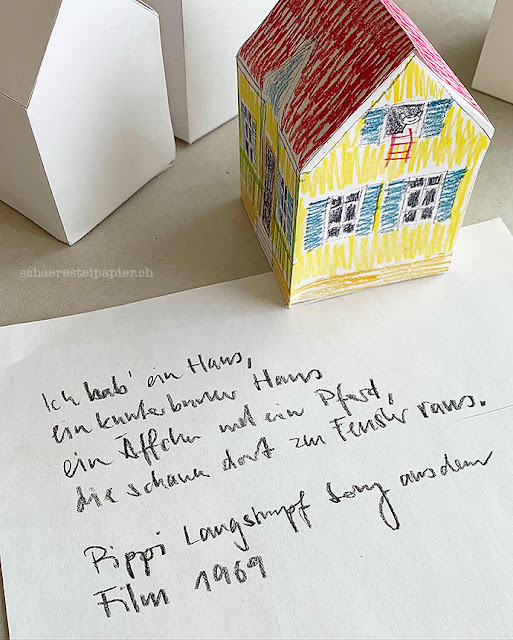 schaeresteipapier.ch
Ich hab' ein Haus,
ein kunterbuntes Haus
ein Äffchen und ein Pferd,
die schauen dort zum Fenster raus.
Pippi Langstrumpf Song aus dem
Film 1969